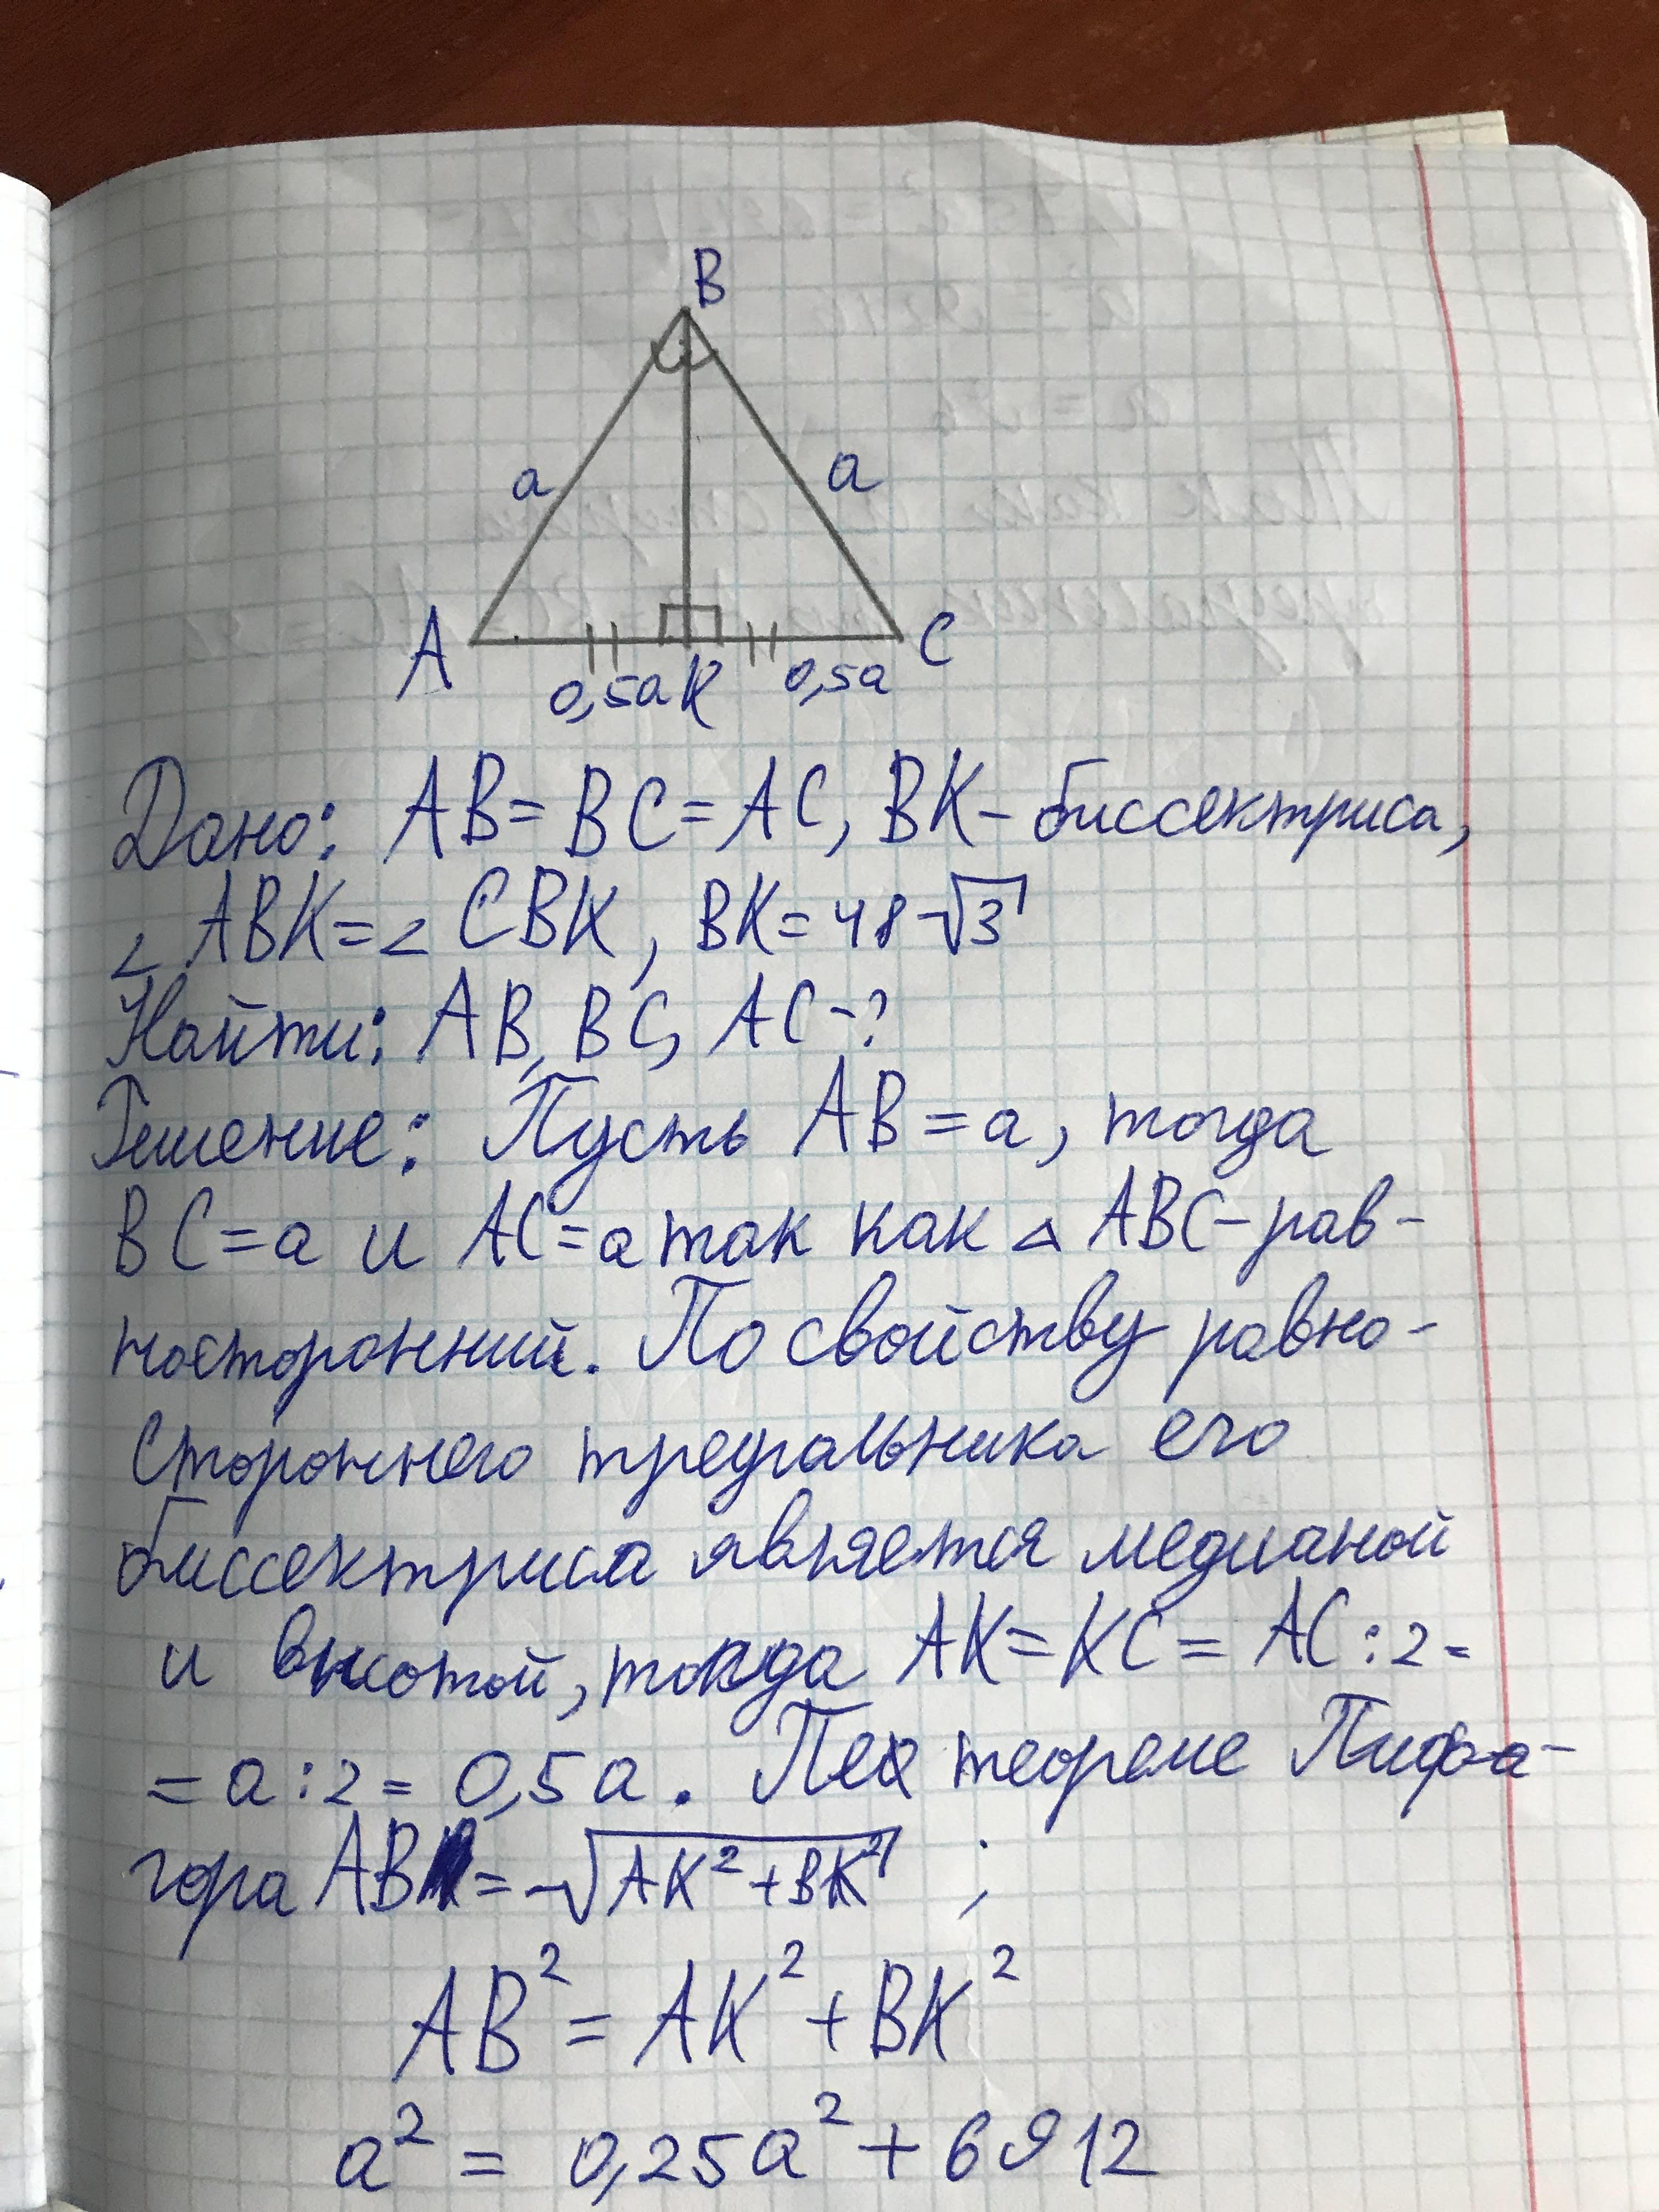 B
a a
A C
0,5a K 0,5a
Дано: AB = BC = AC, BK – биссектриса,
∠ ABK = ∠ CBK, BK = 48√3
Найти: AB, BC, AC - ?
Решение: Пусть AB = a, тогда
BC = a и AC = a так как △ ABC – рав-
носторонний. По свойству равно-
стороннего треугольника его
биссектриса является медианой
и высотой, тогда AK = KC = AC : 2 =
= a : 2 = 0,5a. По теореме Пифа-
гора AB = √AK² + BK² ;
AB² = AK² + BK²
a² = 0,25a² + 6912